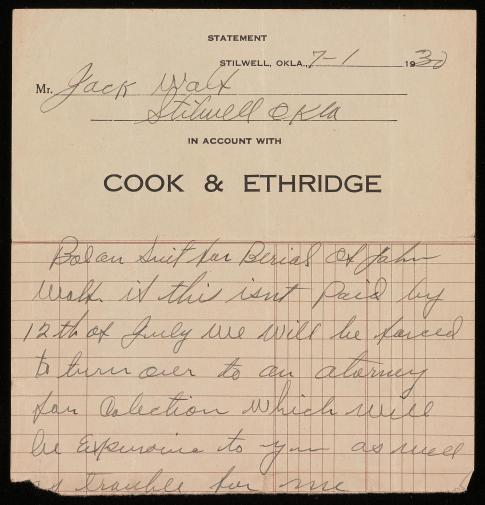 STATEMENT
STILWELL, OKLA., 7-1 1930
Mr. Jack Walx
Stilwell Okla
IN ACCOUNT WITH
COOK & ETHRIDGE
Bol on Suit for Berial of John
Walx. if this isnt Paid by
12th of July we will be forced
to turn over to an atorney
for Colection which will
be Expensive to you as well
as trouble for me